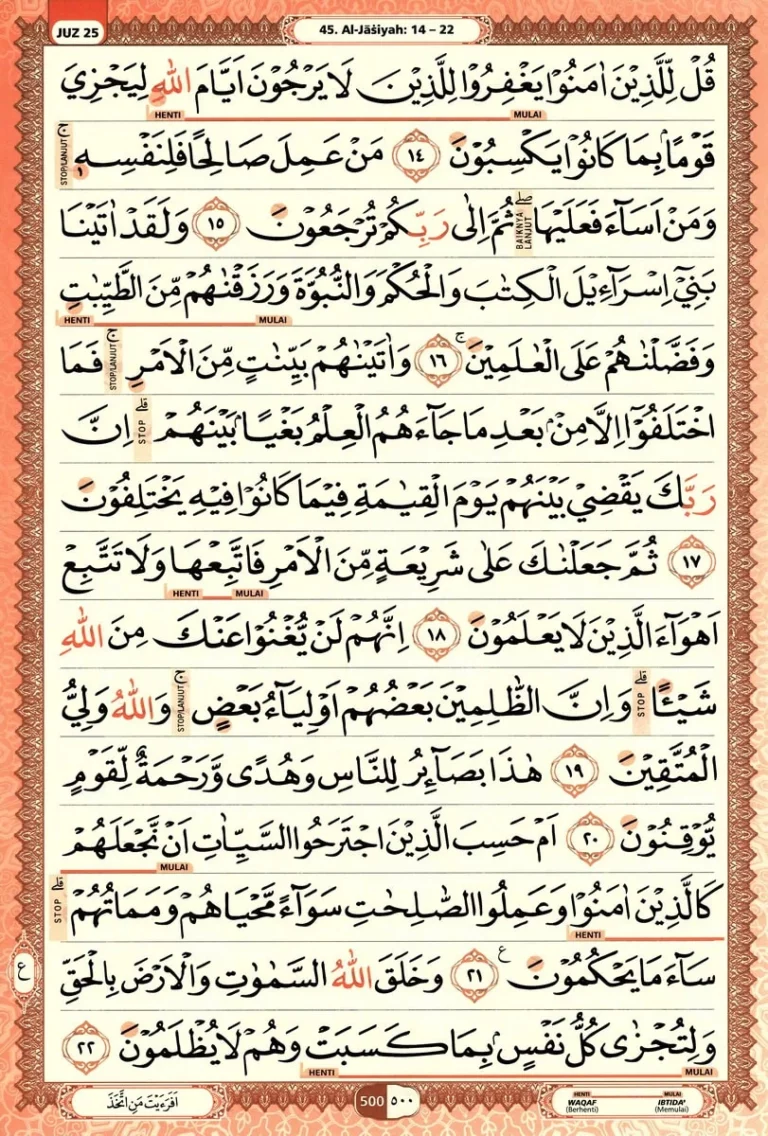 JUZ 25
45. Al-Jāṡiyah: 14 – 22
قُلْ لِّلَّذِيْنَ اٰمَنُوْا يَغْفِرُوْا لِلَّذِيْنَ لَا يَرْجُوْنَ اَيَّامَ اللّٰهِ لِيَجْزِيَ
MULAI HENTI
قَوْمًاۢ بِمَا كَانُوْا يَكْسِبُوْنَ ١٤ مَنْ عَمِلَ صَالِحًا فَلِنَفْسِهٖۚ
STOP/LANJUT
وَمَنْ اَسَاۤءَ فَعَلَيْهَاۖ ثُمَّ اِلٰى رَبِّكُمْ تُرْجَعُوْنَ ١٥ وَلَقَدْ اٰتَيْنَا
BAIKNYA LANJUT
بَنِيْٓ اِسْرَاۤءِيْلَ الْكِتٰبَ وَالْحُكْمَ وَالنُّبُوَّةَ وَرَزَقْنٰهُمْ مِّنَ الطَّيِّبٰتِ
MULAI HENTI
وَفَضَّلْنٰهُمْ عَلَى الْعٰلَمِيْنَۚ ١٦ وَاٰتَيْنٰهُمْ بَيِّنٰتٍ مِّنَ الْاَمْرِۚ فَمَا
STOP/LANJUT
اخْتَلَفُوْٓا اِلَّا مِنْۢ بَعْدِ مَا جَاۤءَهُمُ الْعِلْمُ بَغْيًاۢ بَيْنَهُمْۗ اِنَّ
STOP
رَبَّكَ يَقْضِيْ بَيْنَهُمْ يَوْمَ الْقِيٰمَةِ فِيْمَا كَانُوْا فِيْهِ يَخْتَلِفُوْنَ
١٧ ثُمَّ جَعَلْنٰكَ عَلٰى شَرِيْعَةٍ مِّنَ الْاَمْرِ فَاتَّبِعْهَا وَلَا تَتَّبِعْ
MULAI HENTI
اَهْوَاۤءَ الَّذِيْنَ لَا يَعْلَمُوْنَ ١٨ اِنَّهُمْ لَنْ يُّغْنُوْا عَنْكَ مِنَ اللّٰهِ
شَيْـًٔاۗ وَاِنَّ الظّٰلِمِيْنَ بَعْضُهُمْ اَوْلِيَاۤءُ بَعْضٍۚ وَاللّٰهُ وَلِيُّ
STOP STOP/LANJUT
الْمُتَّقِيْنَ ١٩ هٰذَا بَصَاۤىِٕرُ لِلنَّاسِ وَهُدًى وَّرَحْمَةٌ لِّقَوْمٍ
يُّوْقِنُوْنَ ٢٠ اَمْ حَسِبَ الَّذِيْنَ اجْتَرَحُوا السَّيِّاٰتِ اَنْ نَّجْعَلَهُمْ
MULAI
كَالَّذِيْنَ اٰمَنُوْا وَعَمِلُوا الصّٰلِحٰتِ سَوَاۤءً مَّحْيَاهُمْ وَمَمَاتُهُمْۗ
STOP
HENTI
سَاۤءَ مَا يَحْكُمُوْنَ ࣖ ٢١ وَخَلَقَ اللّٰهُ السَّمٰوٰتِ وَالْاَرْضَ بِالْحَقِّ
ع
وَلِتُجْزٰى كُلُّ نَفْسٍۢ بِمَا كَسَبَتْ وَهُمْ لَا يُظْلَمُوْنَ ٢٢
MULAI HENTI
اَفَرَءَيْتَ مَنِ اتَّخَذَ
500 ٥٠٠
HENTI MULAI
WAQAF IBTIDA'
(Berhenti) (Memulai)